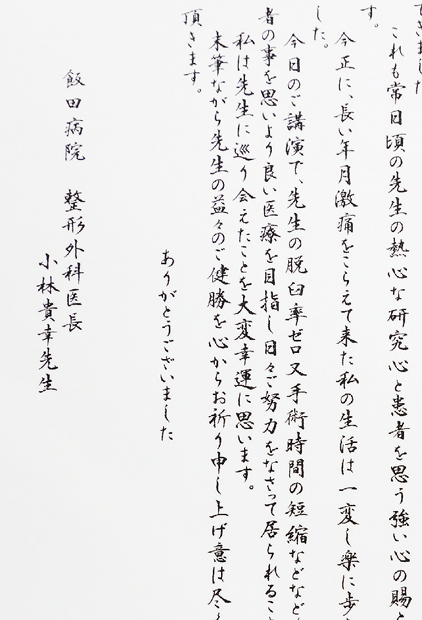 できました
これも常日頃の先生の熱心な研究心と患者を思う強い心の賜と
す。
今正に、長い年月激痛をこらえて来た私の生活は一変し楽に歩
した。
今日のご講演で、先生の脱臼率ゼロ又手術時間の短縮などなど
者の事を思いより良い医療を目指し日々ご努力をなさって居られるこ
私は先生に巡り会えたことを大変幸運に思います。
末筆ながら先生の益々のご健勝を心からお祈り申し上げ意は尽く
頂きます。
ありがとうございました
飯田病院 整形外科医長
小林貴幸先生